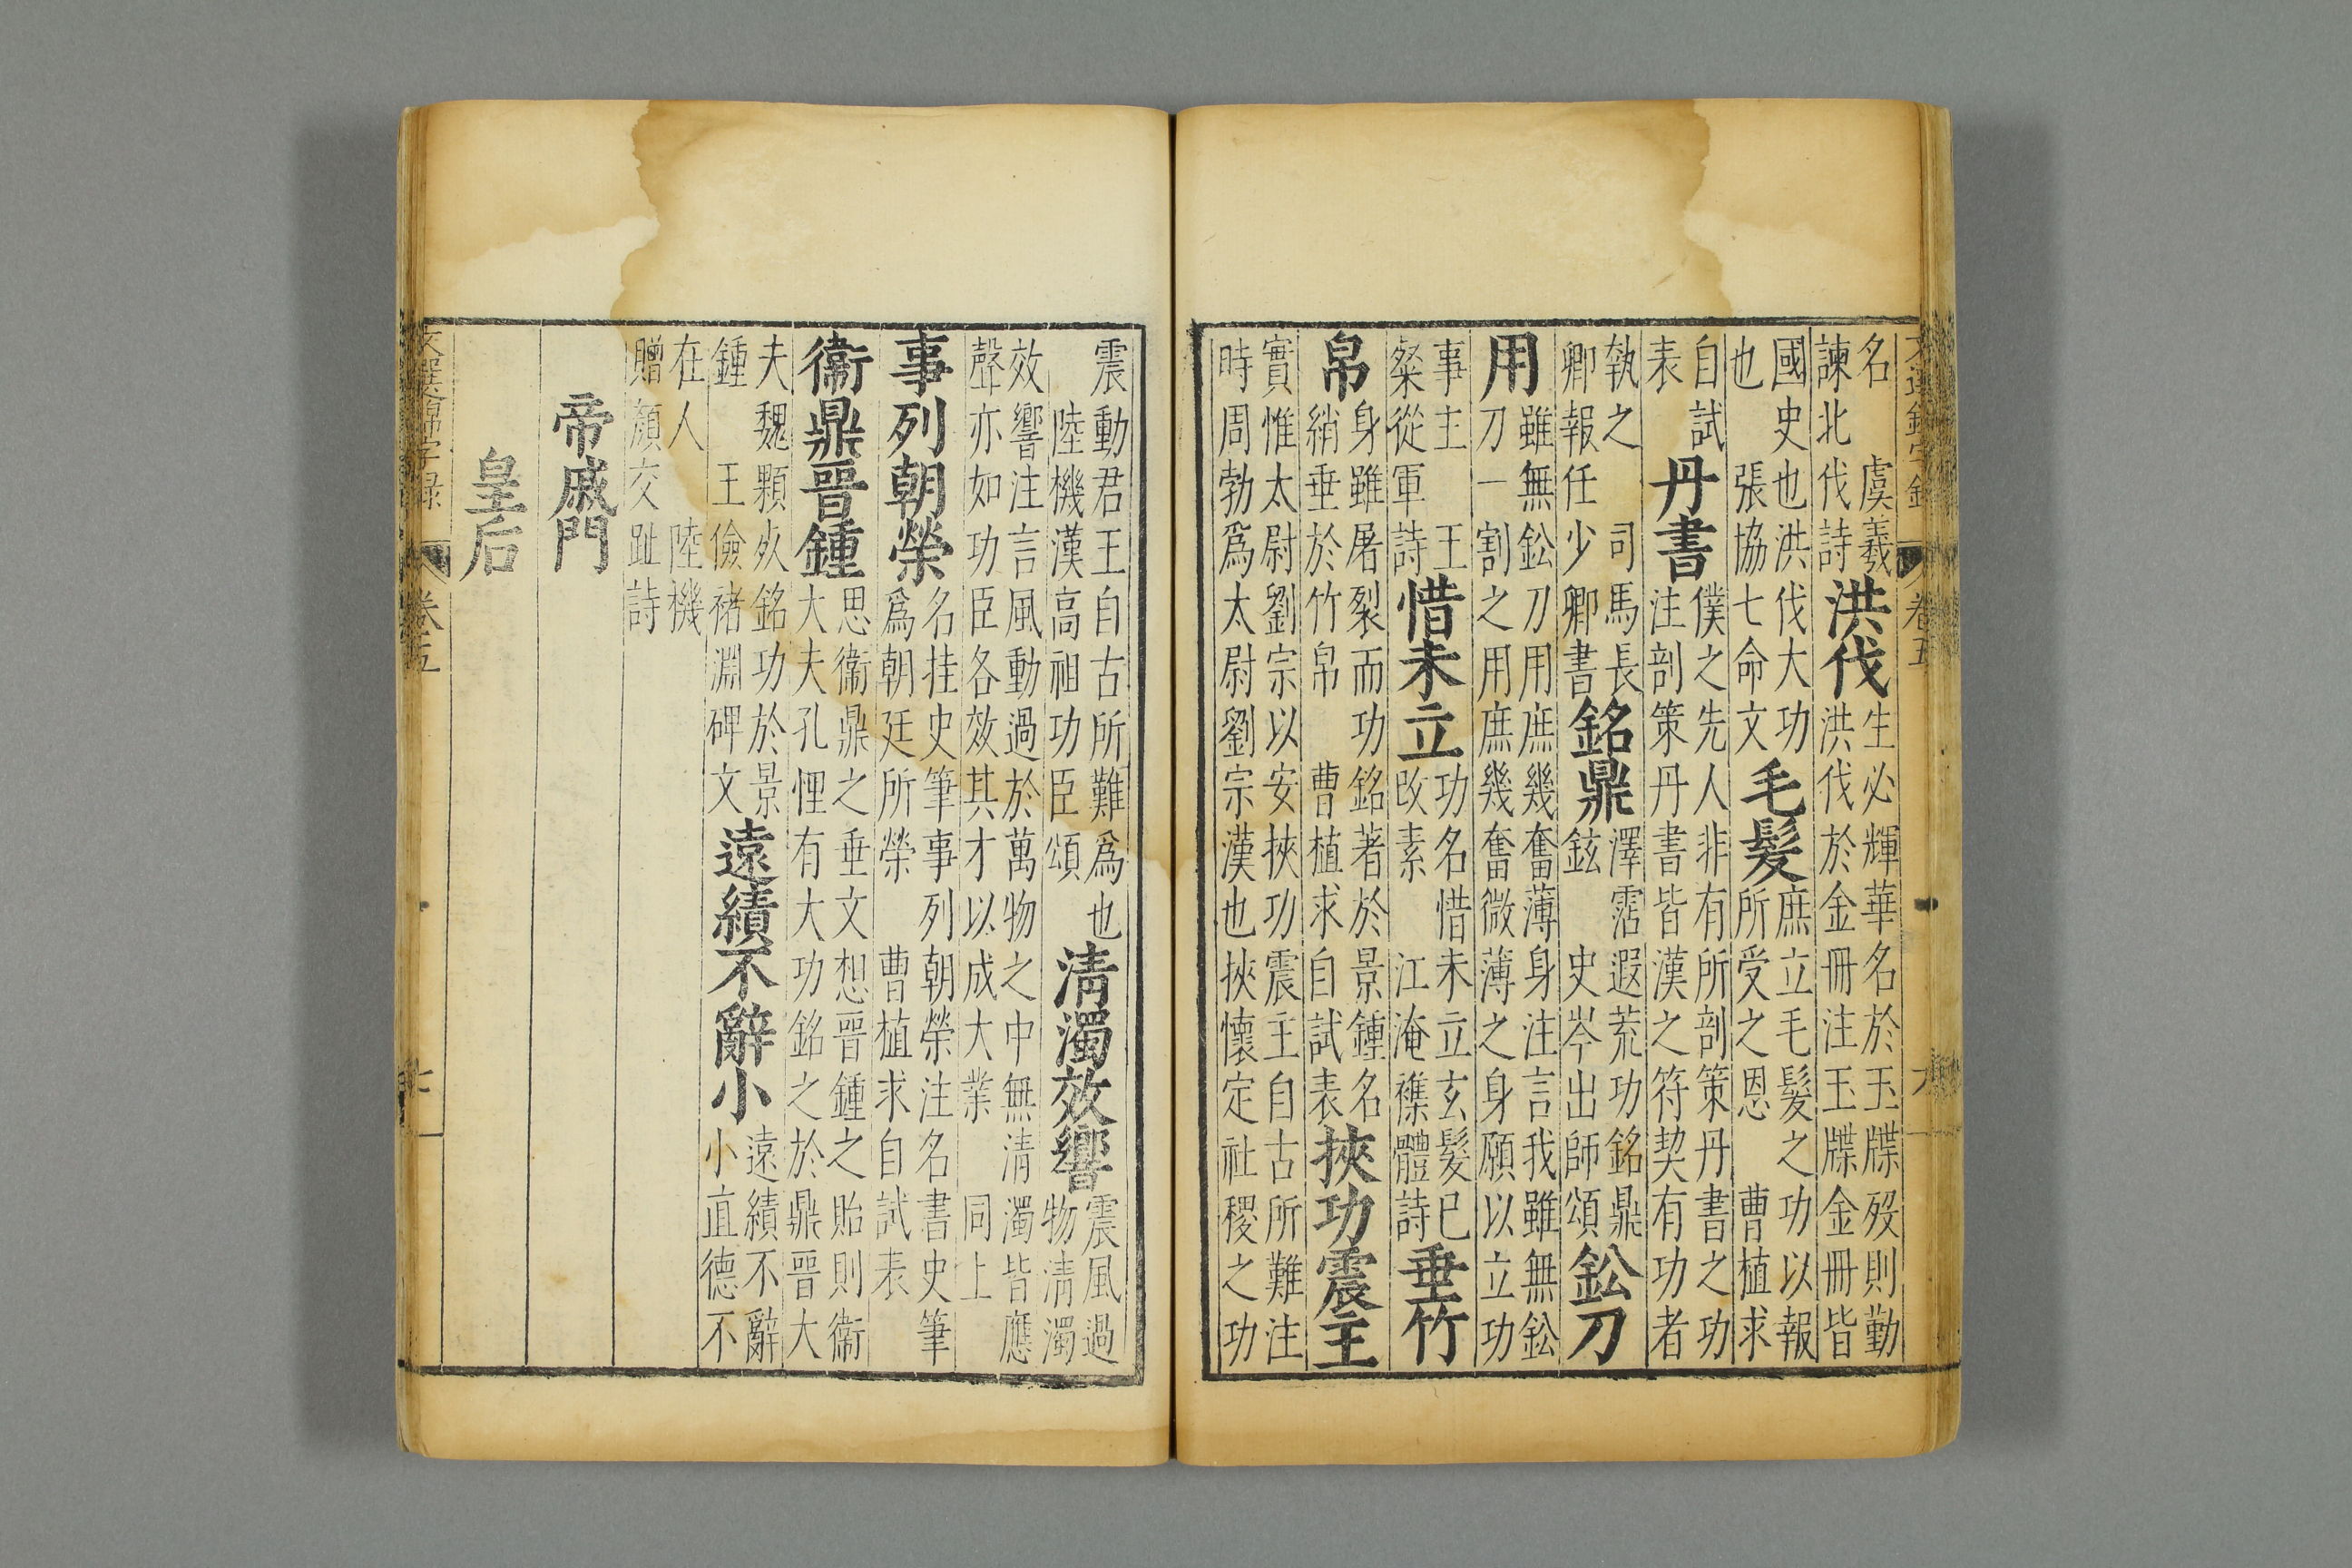 卷五
名虞羲諫北伐詩洪伐生必輝華名於玉牒歿則勤洪伐於金冊注玉牒金冊皆
國史也洪伐大功也張協七命文毛髮庶立毛髮之功以報所受之恩曹植求
自試表丹書僕之先人非有所剖策丹書之功注剖策丹書皆漢之符契有功者
執之司馬長卿報任少卿書銘鼎澤霑遐荒功銘鼎鉉史岑出師頌鈆刀
用雖無鈆刀用庶幾奮薄身注言我雖無鈆刀一割之用庶幾奮微薄之身願以立功
事主王粲從軍詩惜未立功名惜未立玄髮已改素江淹襍體詩垂竹
帛身雖屠裂而功銘著於景鍾名綃垂於竹帛曹植求自試表挾功震主
實惟太尉劉宗以安挾功震主自古所難注時周勃爲太尉劉宗漢也挾懷定社稷之功
震動君王自古所難爲也陸機漢高祖功臣頌清濁效響震風過物清濁
效響注言風動過於萬物之中無清濁皆應聲亦如功臣各效其才以成大業同上
事列朝榮名挂史筆事列朝榮注名書史筆爲朝廷所榮曹植求自試表
衞鼎晉鍾思衞鼎之垂文想晉鍾之貽則衞大夫孔悝有大功銘之於鼎晉大
夫魏顆亦銘功於景鍾王儉褚淵碑文遠績不辭小遠績不辭小直德不
在人陸機贈顏交趾詩
帝戚門
皇后
文選錦字錄 卷五